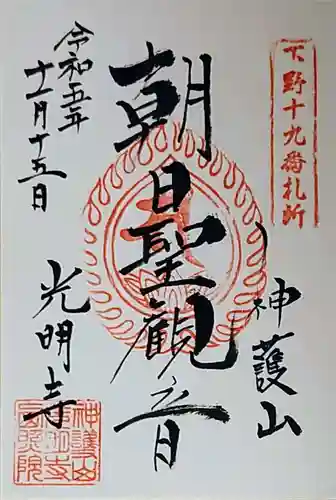 下野十九番札所
神護山
朝日聖観世音
光明寺
令和五年
十一月十五日